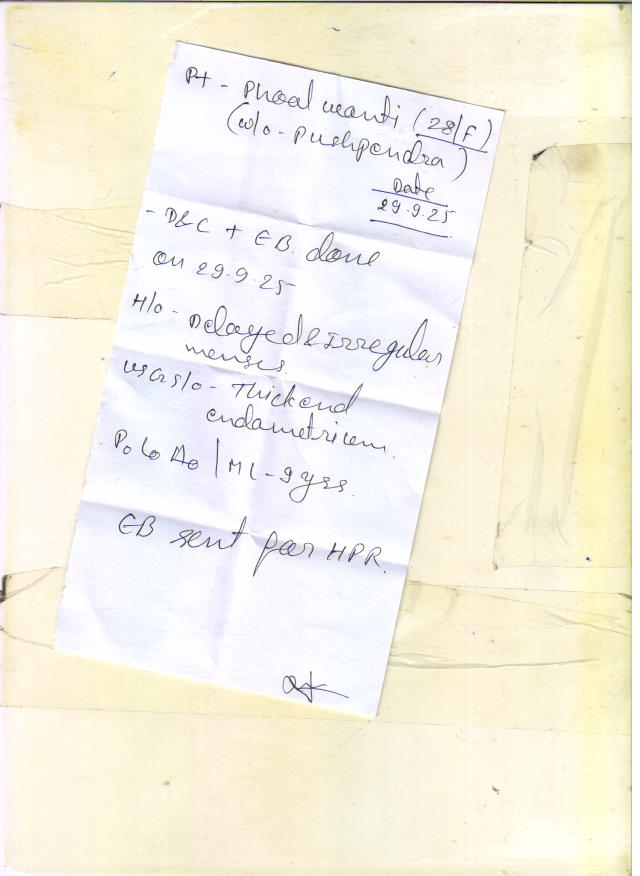 Pt - Phool wanti (28/F)
(w/o - Pushpendra)
Date
29.9.25
- D&C + EB. done
on 29.9.25
H/o - Delayed & Irregular
menses.
USG s/o - Thickend
endametrium.
P₀ L₀ A₀ | ML - 9 yrs.
EB sent for HPR.